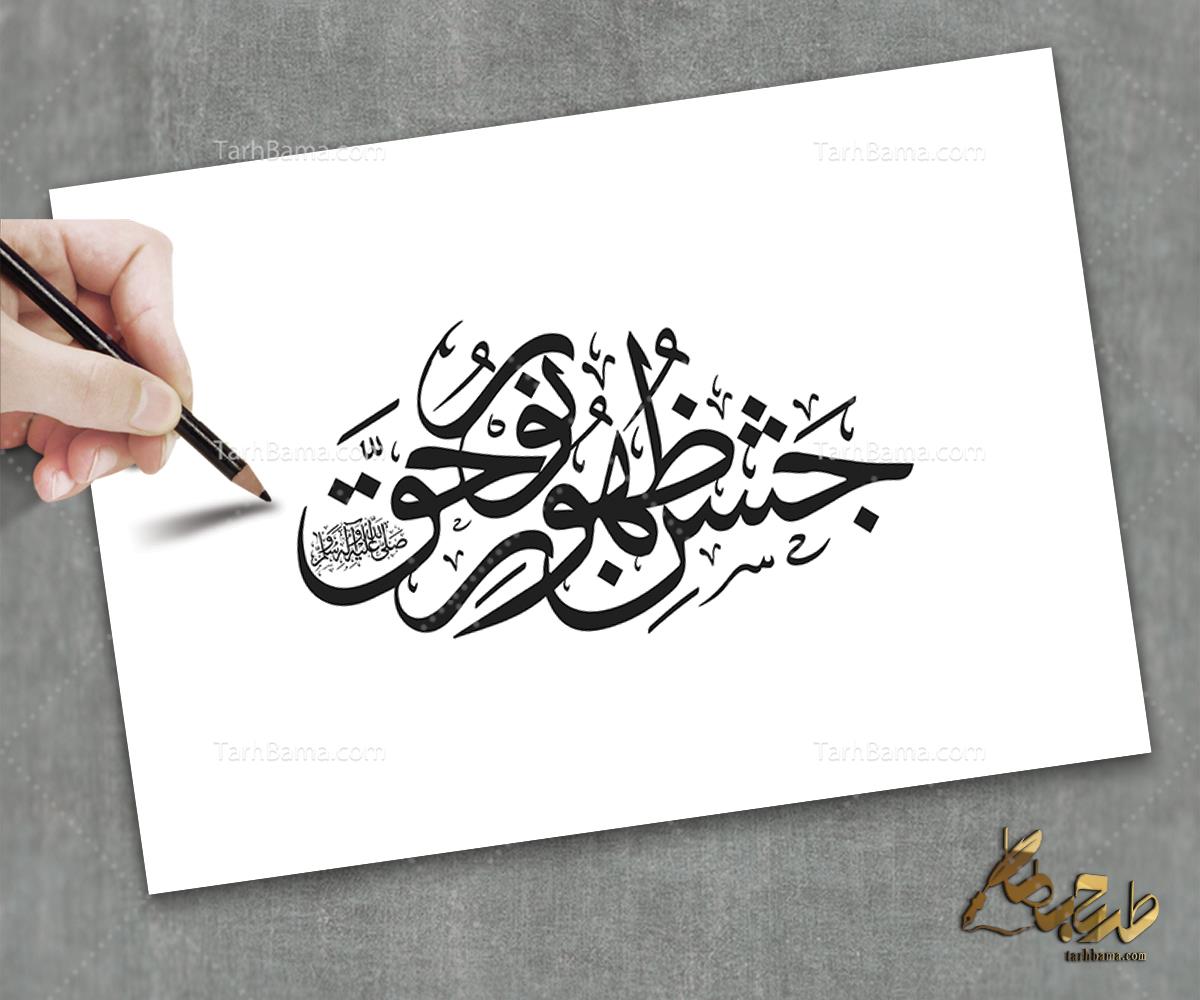 TarhBama.com TarhBama.com
جَشنِ ظُهورِ نورِ حَقّ
صلی الله علیه و آله و سلم
TarhBama.com TarhBama.com
TarhBama.com TarhBama.com
طرح با ما
tarhbama.com